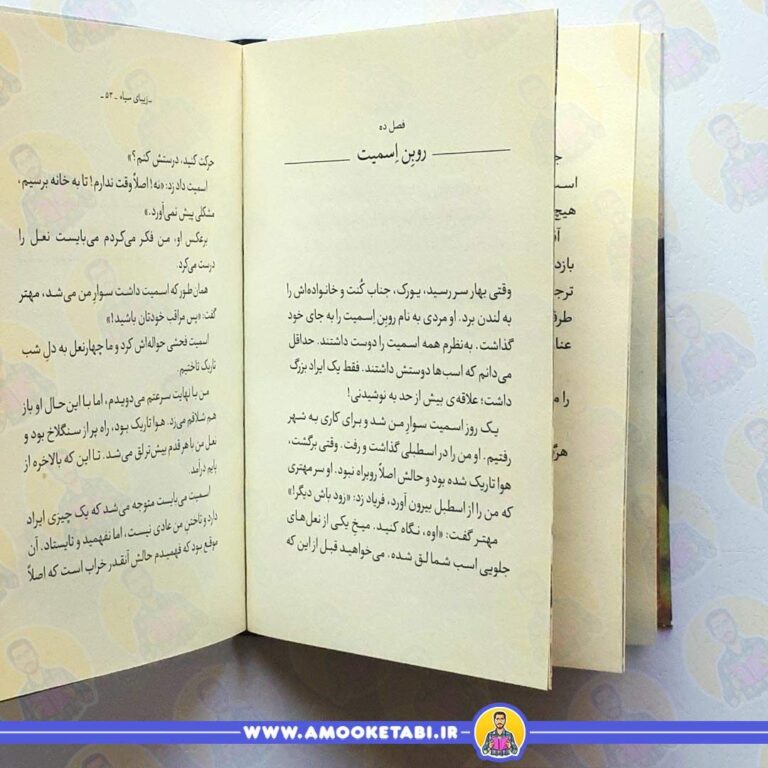 فصل ده
روبِن اِسمیت
وقتی بهار سر رسید، یورک، جناب کُنت و خانواده‌اش را
به لندن برد. او مردی به نام روبِن اِسمیت را به جای خود
گذاشت. به‌نظرم همه اسمیت را دوست داشتند. حداقل
می‌دانم که اسب‌ها دوستش داشتند. فقط یک ایراد بزرگ
داشت؛ علاقه‌ی بیش از حد به نوشیدنی!
یک روز اسمیت سوارِ من شد و برای کاری به شهر
رفتیم. او من را در اسطبلی گذاشت و رفت. وقتی برگشت،
هوا تاریک شده بود و حالش اصلاً روبراه نبود. او سرِ مهتری
که من را از اسطبل بیرون آورد، فریاد زد: «زود باش دیگر!»
مهتر گفت: «اوه، نگاه کنید. میخِ یکی از نعل‌های
جلویی اسب شما لق شده. می‌خواهید قبل از این که
ـ زیبای سیاه ـ ۵۳ ـ
حرکت کنید، درستش کنم؟»
اسمیت داد زد: «نه! اصلاً وقت ندارم! تا به خانه برسیم،
مشکلی پیش نمی‌آورد.»
برعکس او، من فکر می‌کردم می‌بایست نعل را
درست می‌کرد.
همان‌طور که اسمیت داشت سوارِ من می‌شد، مهتر
گفت: «پس مراقب خودتان باشید!»
اسمیت فحشی حواله‌اش کرد و ما چهارنعل به دلِ شب
تاریک تاختیم.
من با نهایت سرعتم می‌دویدم، اما با این حال او باز
هم شلاقم می‌زد. هوا تاریک بود، راه پر از سنگلاخ بود و
نعل من با هر قدم بیش‌تر لق می‌شد. تا این که بالاخره از
پایم درآمد.
اسمیت می‌بایست متوجه می‌شد که یک چیزی ایراد
دارد و تاختنِ من عادی نیست، اما نفهمید و نایستاد. آن
موقع بود که فهمیدم حالش آنقدر خراب است که اصلاً
هیچ
بازد
ترج
طرف
عنا
را م
هرگ
WWW.AMOOKETABI.IR